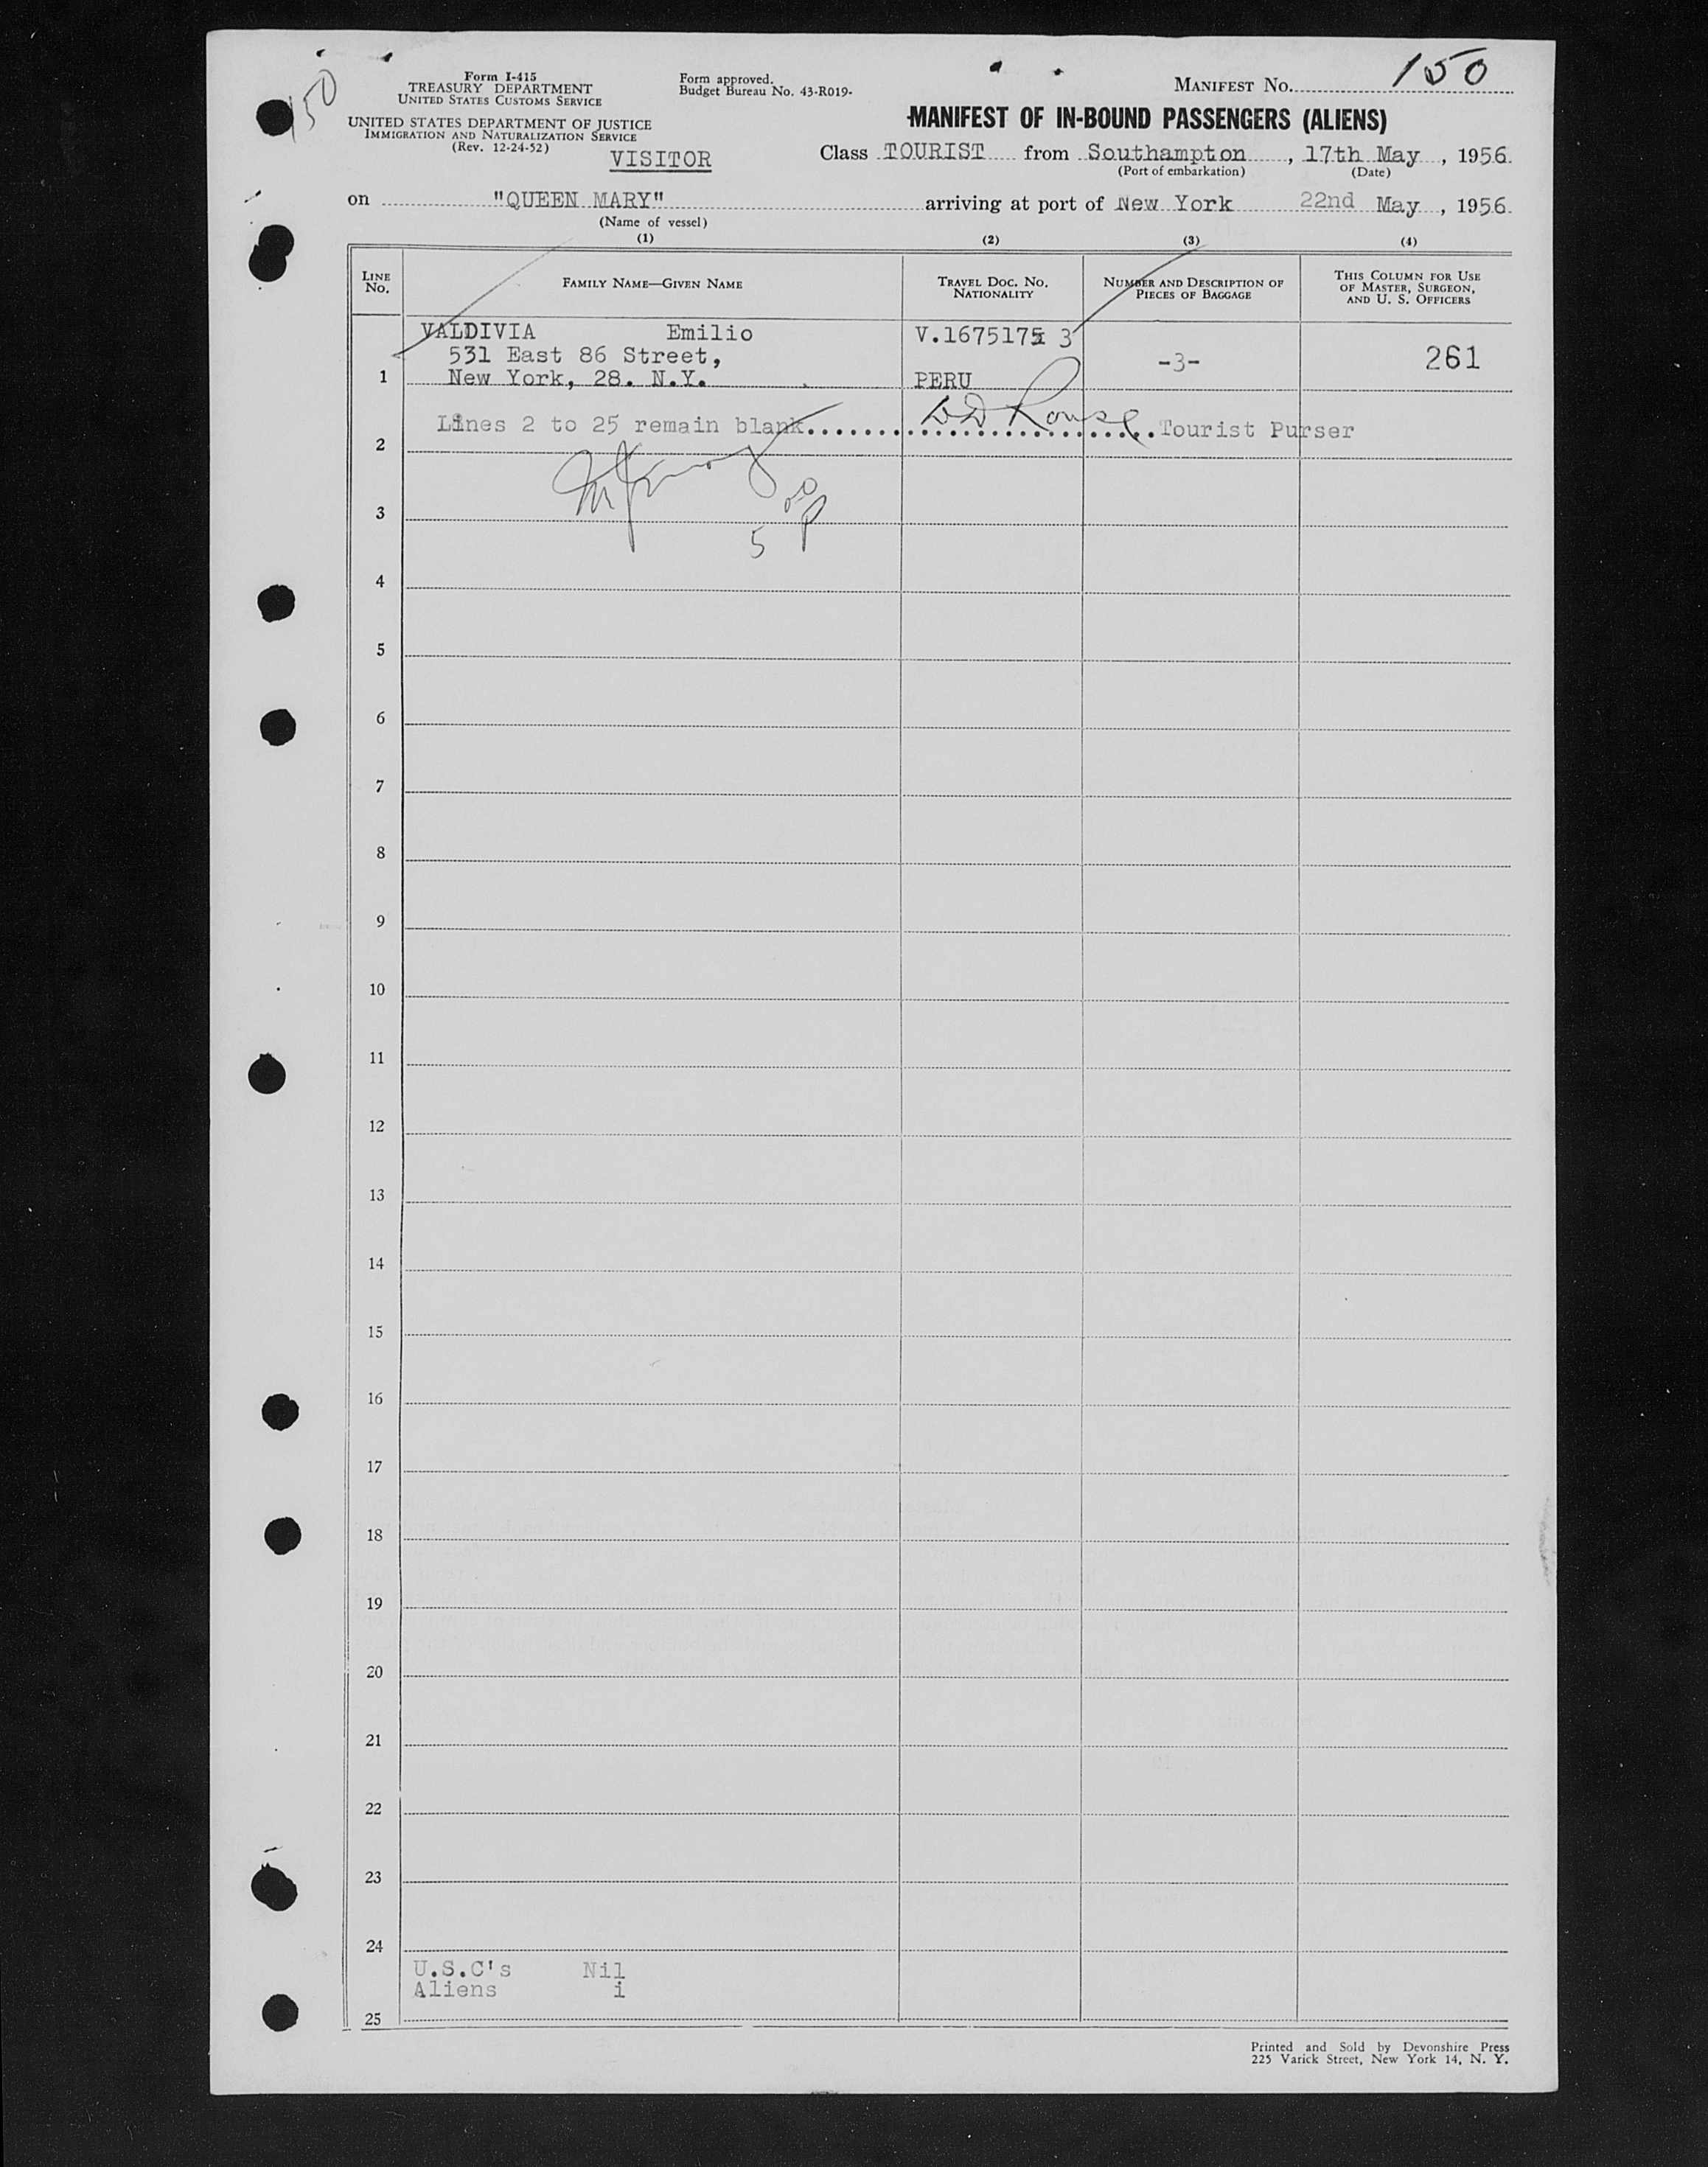 150
Form I-415
TREASURY DEPARTMENT
UNITED STATES CUSTOMS SERVICE
UNITED STATES DEPARTMENT OF JUSTICE
IMMIGRATION AND NATURALIZATION SERVICE
(Rev. 12-24-52)
VISITOR
Form approved.
Budget Bureau No. 43-R019-
MANIFEST No. 150
MANIFEST OF IN-BOUND PASSENGERS (ALIENS)
Class TOURIST from Southampton, 17th May, 1956
(Port of embarkation) (Date)
on "QUEEN MARY" arriving at port of New York 22nd May, 1956
(Name of vessel)
(1) (2) (3) (4)
LINE No. FAMILY NAME—GIVEN NAME TRAVEL DOC. No. NATIONALITY NUMBER AND DESCRIPTION OF PIECES OF BAGGAGE THIS COLUMN FOR USE OF MASTER, SURGEON, AND U. S. OFFICERS
VALDIVIA Emilio V.1675175 3
531 East 86 Street, -3- 261
1 New York, 28. N.Y. PERU
Lines 2 to 25 remain blank. Tourist Purser
2
3
5
4
5
6
7
8
9
10
11
12
13
14
15
16
17
18
19
20
21
22
23
24
U.S.C's Nil
Aliens 1
25
Printed and Sold by Devonshire Press
225 Varick Street, New York 14, N. Y.